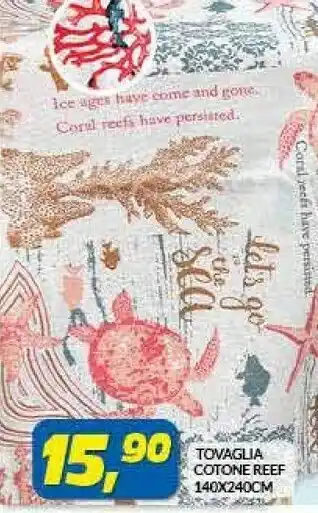 Ice ages have come and gone.
Coral reefs have persisted.
Coral reefs have persisted.
let's go
to
the
sea
15,90
TOVAGLIA
COTONE REEF
140X240CM